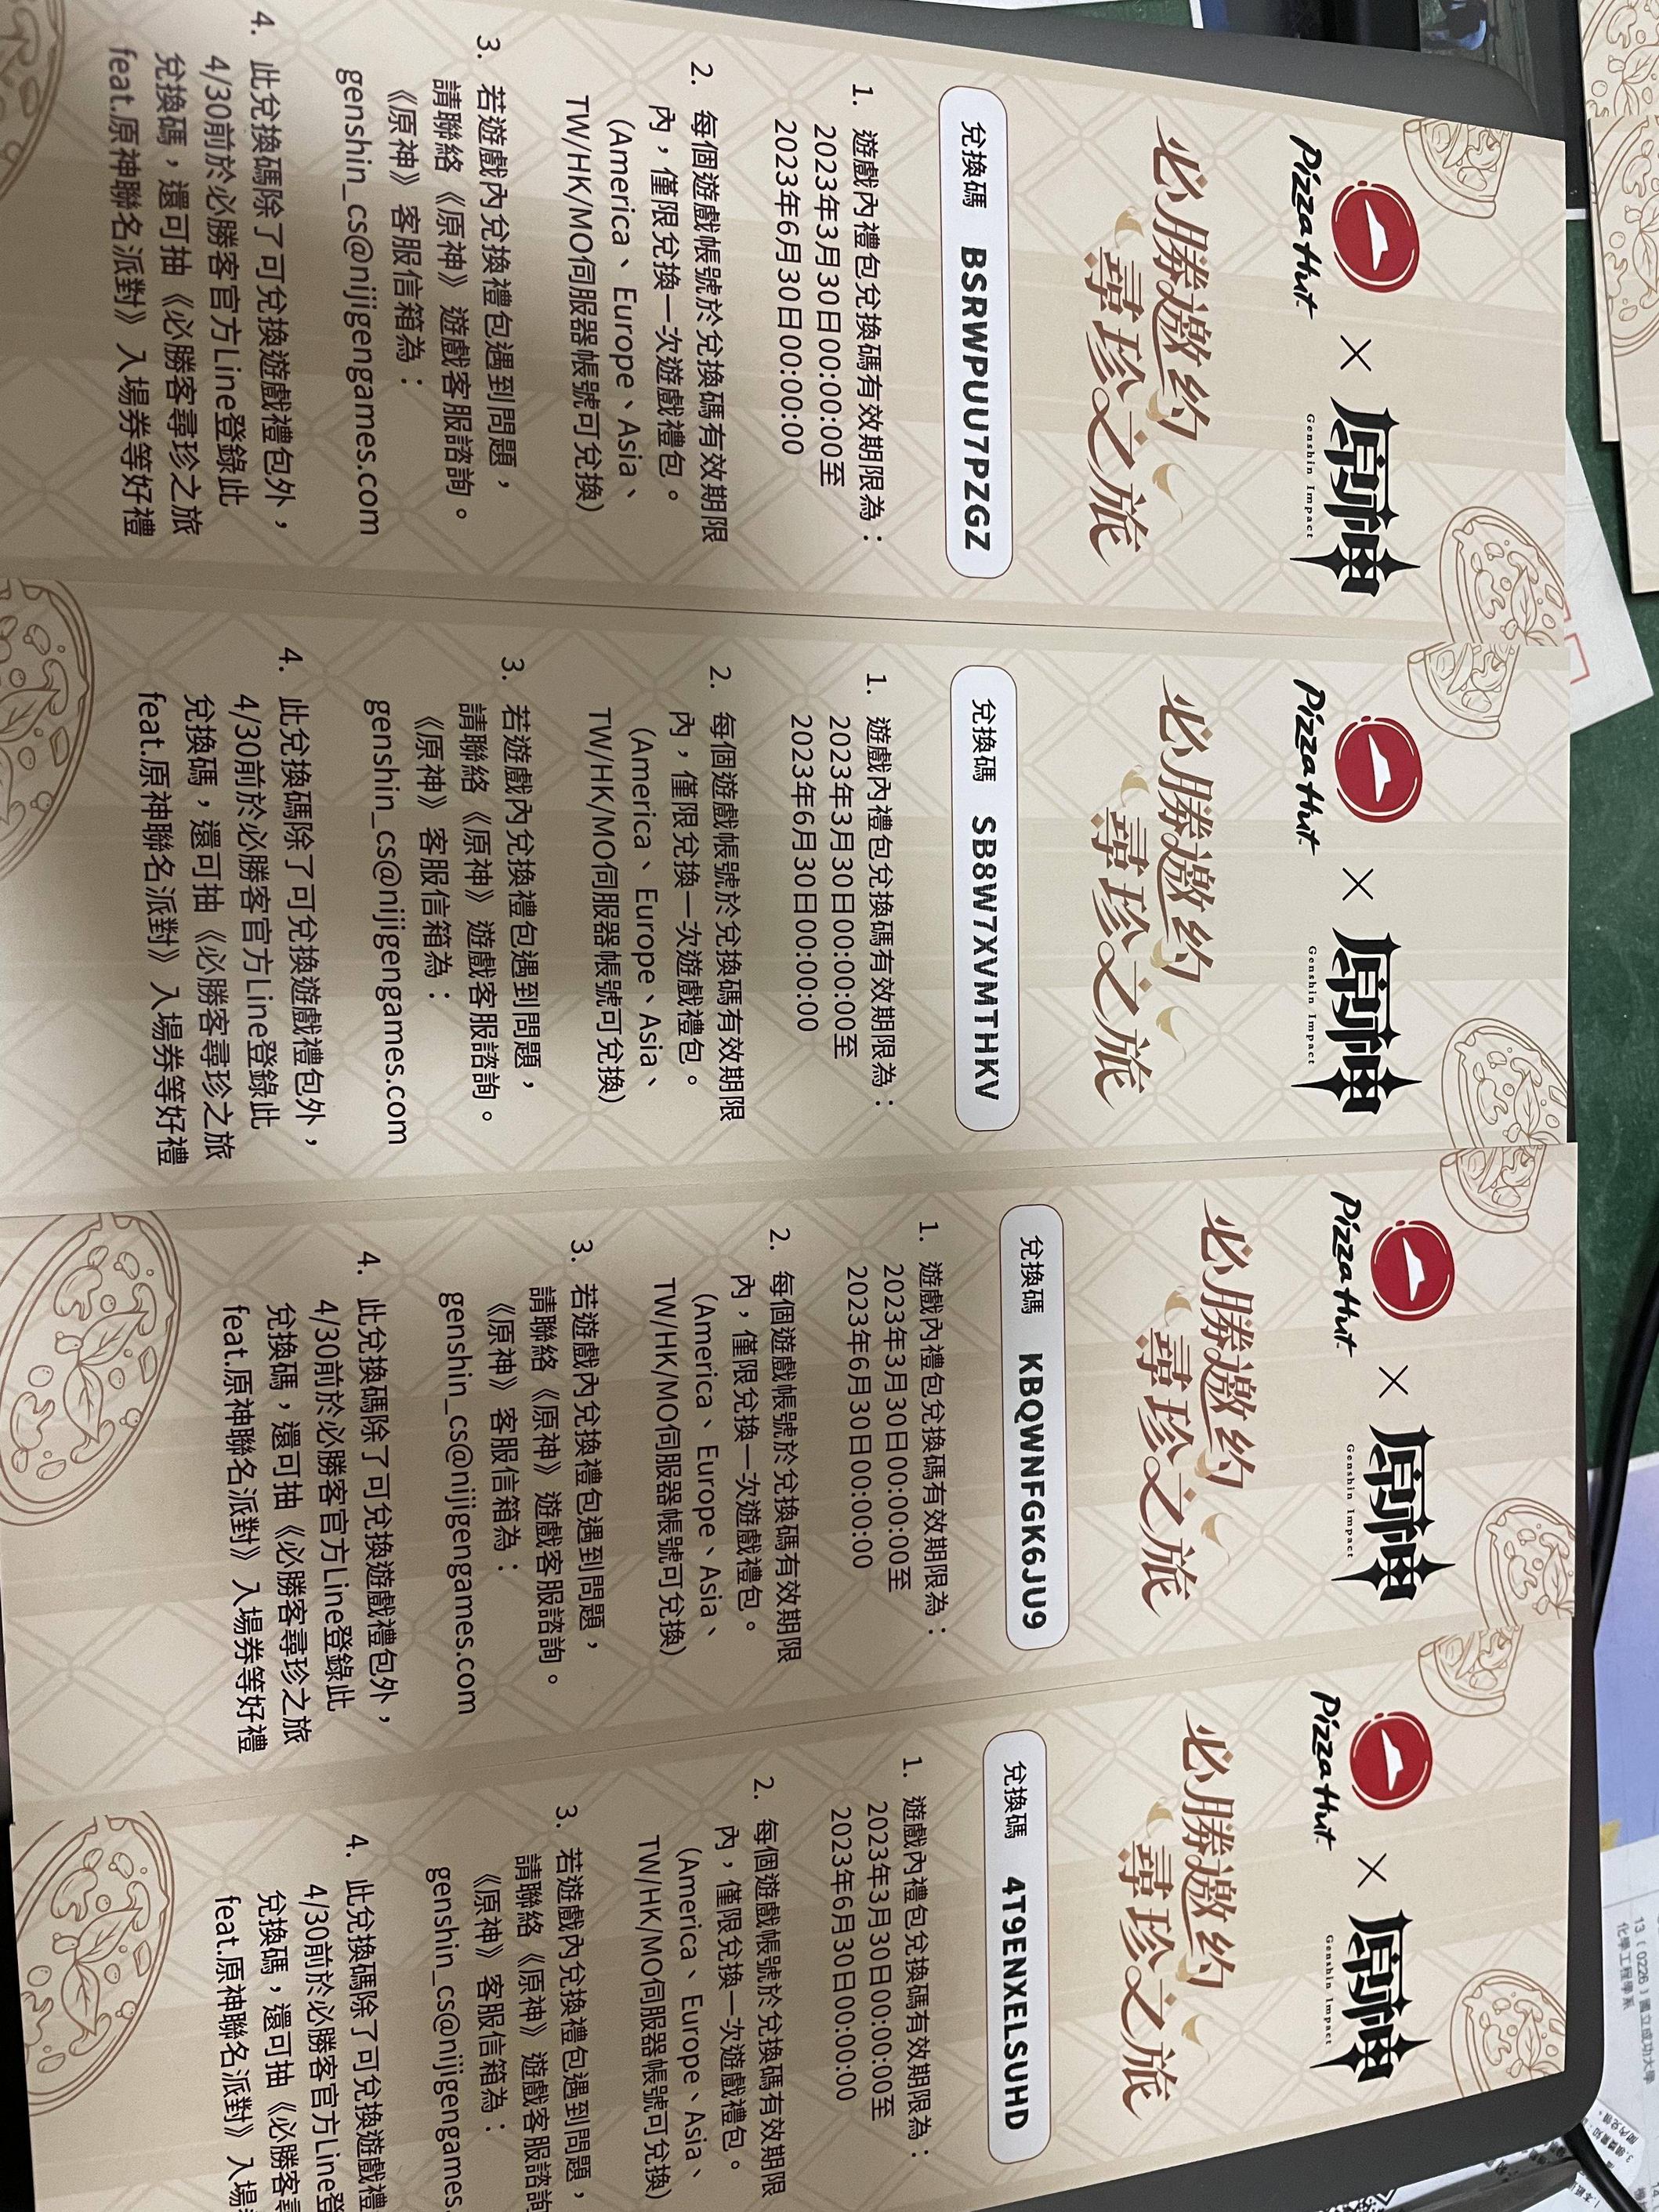 Pizza Hut × 原神
Genshin Impact
必勝邀約
尋珍之旅
兌換碼 BSRWPUU7PZGZ
1. 遊戲內禮包兌換碼有效期限為：
2023年3月30日00:00:00至
2023年6月30日00:00:00
2. 每個遊戲帳號於兌換碼有效期限
內，僅限兌換一次遊戲禮包。
(America、Europe、Asia、
TW/HK/MO伺服器帳號可兌換)
3. 若遊戲內兌換禮包遇到問題，
請聯絡《原神》遊戲客服諮詢。
《原神》客服信箱為：
genshin_cs@nijigengames.com
4. 此兌換碼除了可兌換遊戲禮包外，
4/30前於必勝客官方Line登錄此
兌換碼，還可抽《必勝客尋珍之旅
feat.原神聯名派對》入場券等好禮
Pizza Hut × 原神
Genshin Impact
必勝邀約
尋珍之旅
兌換碼 SB8W7XVMTHKV
1. 遊戲內禮包兌換碼有效期限為：
2023年3月30日00:00:00至
2023年6月30日00:00:00
2. 每個遊戲帳號於兌換碼有效期限
內，僅限兌換一次遊戲禮包。
(America、Europe、Asia、
TW/HK/MO伺服器帳號可兌換)
3. 若遊戲內兌換禮包遇到問題，
請聯絡《原神》遊戲客服諮詢。
《原神》客服信箱為：
genshin_cs@nijigengames.com
4. 此兌換碼除了可兌換遊戲禮包外，
4/30前於必勝客官方Line登錄此
兌換碼，還可抽《必勝客尋珍之旅
feat.原神聯名派對》入場券等好禮
Pizza Hut × 原神
Genshin Impact
必勝邀約
尋珍之旅
兌換碼 KBQWNFGK6JU9
1. 遊戲內禮包兌換碼有效期限為：
2023年3月30日00:00:00至
2023年6月30日00:00:00
2. 每個遊戲帳號於兌換碼有效期限
內，僅限兌換一次遊戲禮包。
(America、Europe、Asia、
TW/HK/MO伺服器帳號可兌換)
3. 若遊戲內兌換禮包遇到問題，
請聯絡《原神》遊戲客服諮詢。
《原神》客服信箱為：
genshin_cs@nijigengames.com
4. 此兌換碼除了可兌換遊戲禮包外，
4/30前於必勝客官方Line登錄此
兌換碼，還可抽《必勝客尋珍之旅
feat.原神聯名派對》入場券等好禮
Pizza Hut × 原神
Genshin Impact
必勝邀約
尋珍之旅
兌換碼 4T9ENXELSUHD
1. 遊戲內禮包兌換碼有效期限為：
2023年3月30日00:00:00至
2023年6月30日00:00:00
2. 每個遊戲帳號於兌換碼有效期限
內，僅限兌換一次遊戲禮包。
(America、Europe、Asia、
TW/HK/MO伺服器帳號可兌換)
3. 若遊戲內兌換禮包遇到問題，
請聯絡《原神》遊戲客服諮詢
《原神》客服信箱為：
genshin_cs@nijigengames
4. 此兌換碼除了可兌換遊戲禮
4/30前於必勝客官方Line登
兌換碼，還可抽《必勝客
feat.原神聯名派對》入場
13 ( 0226 ) 國立成功大學
化學工程學系